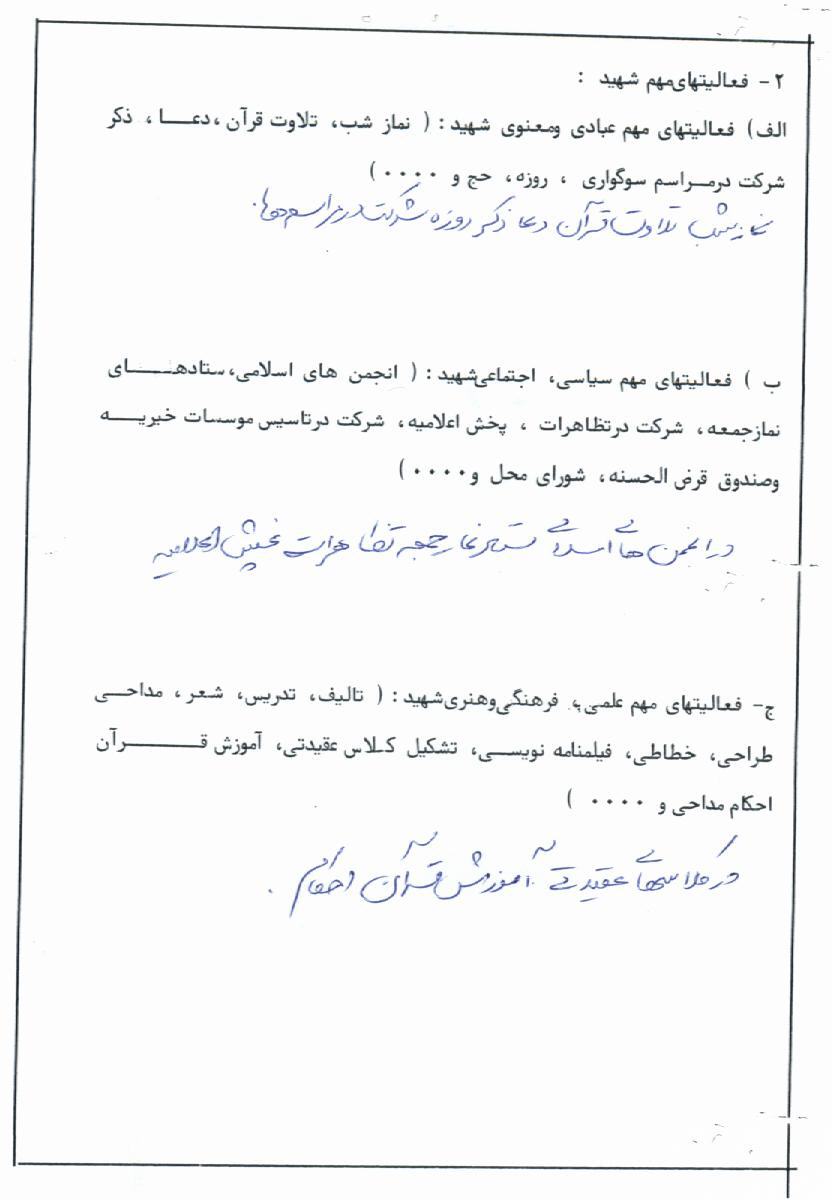 ۲- فعالیتهای مهم شهید :
الف) فعالیتهای مهم عبادی ومعنوی شهید : ( نماز شب، تلاوت قرآن ،دعـــا ، ذکر
شرکت درمــراسم سوگواری ، روزه، حج و ۰۰۰۰ )
نماز شب تلاوت قرآن دعا ذکر روزه شرکت در مراسم ها.
ب ) فعالیتهای مهم سیاسی، اجتماعی‌شهید : ( انجمن های اسلامی،ستادهـــــای
نمازجمعه، شرکت درتظاهرات ، پخش اعلامیه، شرکت درتاسیس موسسات خیریـــه
وصندوق قرض الحسنه، شورای محل و۰۰۰۰ )
در انجمن های اسلامی نماز جمعه تظاهرات پخش اعلامیه
ج- فعالیتهای مهم علمی، فرهنگی‌وهنری‌شهید : ( تالیف، تدریس، شعر ، مداحــی
طراحی، خطاطی، فیلمنامه نویســی، تشکیل کـلاس عقیدتی، آموزش قــــــرآن
احکام مداحی و ۰۰۰۰ )
در کلاسهای عقیدتی آموزش قرآن احکام .